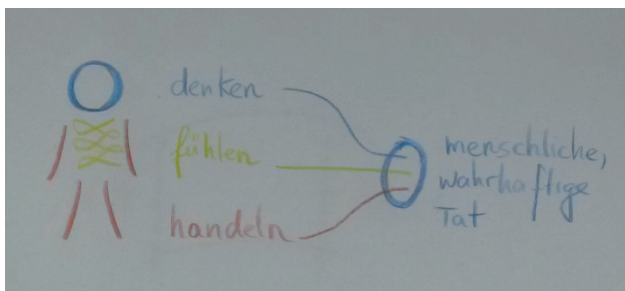 denken
fühlen
handeln
menschliche,
wahrhaftige
Tat